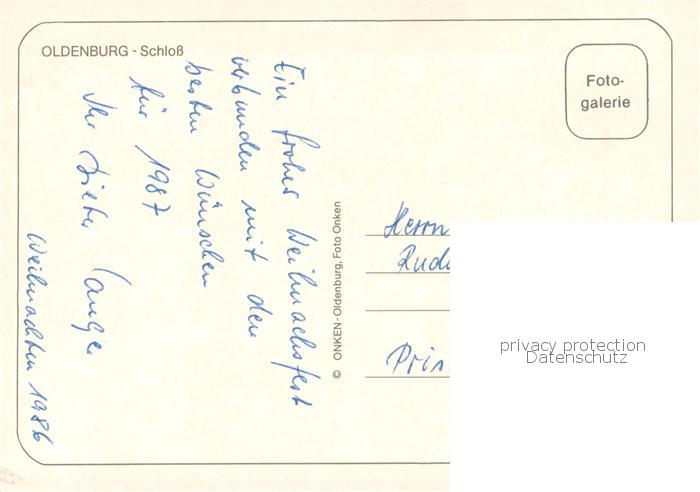 OLDENBURG - Schloß
Ein frohes Weihnachsfest
verbunden mit den
besten Wünschen
für 1987
Ihr Dieter Lange
Weihnachten 1986
© ONKEN-Oldenburg, Foto Onken
Foto-
galerie
Herrn
privacy protection
Datenschutz